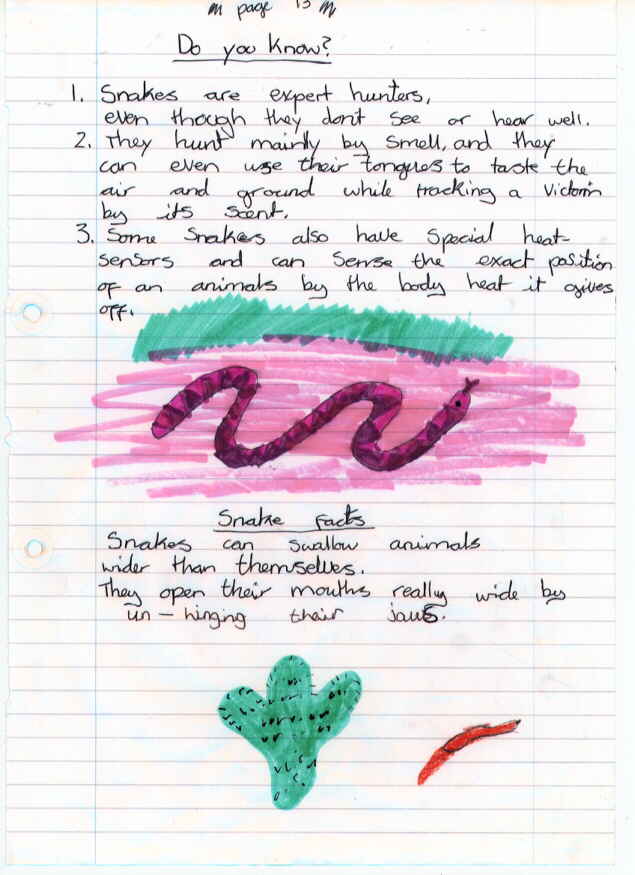 m page 13 m
Do you know?
1. Snakes are expert hunters,
even though they don't see or hear well.
2. They hunt mainly by smell, and they
can even use their tongues to taste the
air and ground while tracking a Victom
by its scent.
3. Some snakes also have special heat-
sensors and can sense the exact position
of an animals by the body heat it gives
off.
Snake facts
Snakes can swallow animals
wider than themselves.
They open their mouths really wide by
un-hinging their jaws.